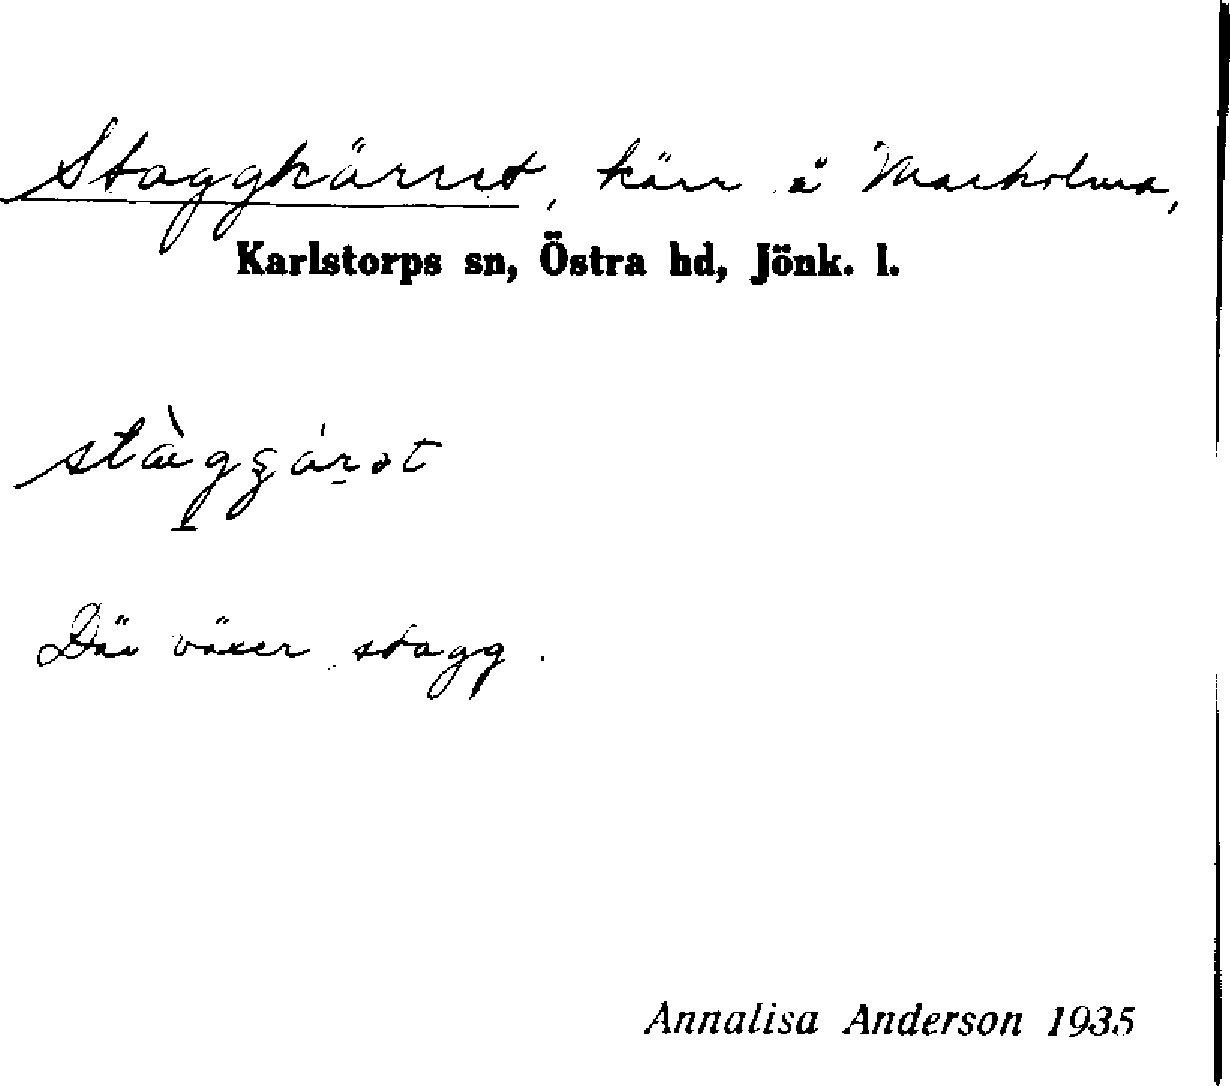 Staggkärret, kärr å Marholma,
Karlstorps sn, Östra hd, Jönk. l.
Där växer stagg.
Annalisa Anderson 1935